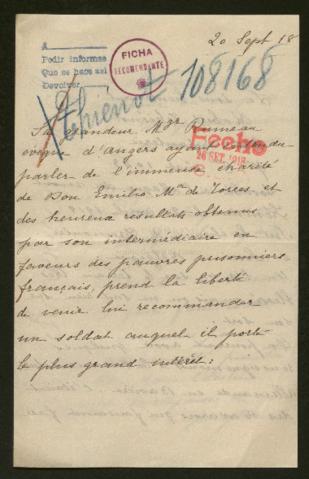 20 Sept 18
A
Pedir informes
Que se hace así
Devolver
FICHA
RECOMENDANTE
Thuenot 108168
Sa Grandeur Mgr Rumeau
Fecho
évêque d'Angers ayant entendu
26 SET. 1918
parler de l'immense charité
de Don Emilio Ma de Torres et
des heureux resultats obtenus
par son intermédiaire en
faveurs des pauvres prisonniers
français, prend la liberté
de venir lui recommander
un soldat auquel il porte
le plus grand intérêt: